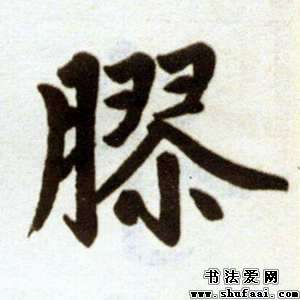 膠
书法爱网
www.shufaai.com